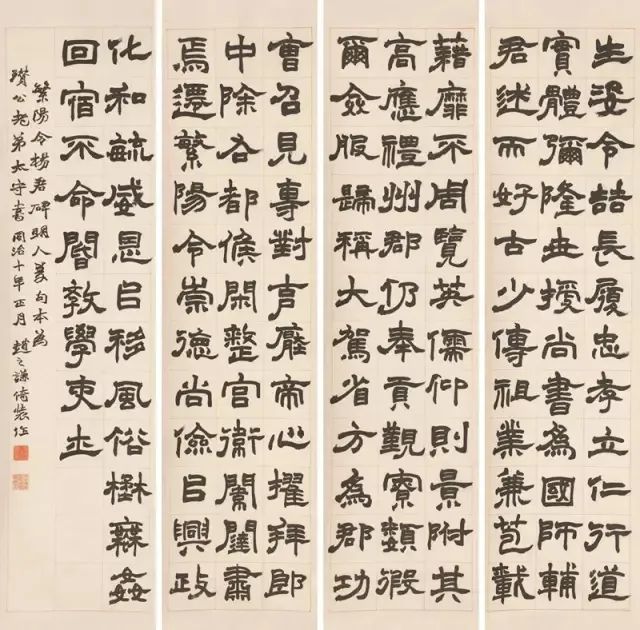 生姿令喆長履忠孝立仁行道
實體彌隆世授尚書為國師輔
君述而好古少傳祖業兼苞載
藉靡不周覽英儒仰則景附其
高應禮州郡仍奉貢覲寮類假
爾僉服歸稱大駕省方為郡功
曹召見專對言應帝心擢拜郎
中除右都候閑整宮衛闈闥肅
焉遷繁陽令崇德尚儉㠯興政
化和毓威恩㠯移風俗無姦
回宿不命閽敦學吏士
繁陽令楊君碑明人本為
瓚公老弟太守書同治十年正月趙之謙倚裝作